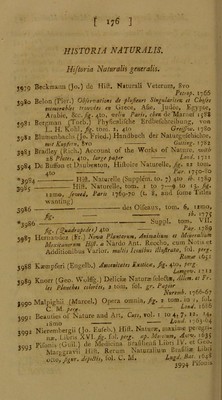 [ 176 ]
HISTORIA NATURALIS.
Historia Naturalis generalis.
3979 Beckmann (Jo.) de Hist. Naturali Veterum, 8vo
Petrop. 1766
3980 Belon (Pier.) Observations de plusieurs Singularitez et Choses
memorables trouvées en Grece, Asie, Judée, Egypte,
Arabie, &c. fig. 4to, exlia Paris, chez de Marnef 1588
3981 Bergman (Torb.) Physicalische Erdbeschreibung, von
L. H. Kuhl, fig. tom. 2, 4to Greifsw. 1780
3982 Blumenbachs (Jo. Fried.) Handbuch der Naturgeschichte,
mit Kupfern, 8vo Gotting. 1782
3983 Bradley (Rich.) Account of the Works of Nature, with
28 Plates, 4to, large paper Lond. 1721
3984 De Buffon et Daubenton, Histoire Naturelle, fig. 12 tom.
4to Par. 1750-60
*3984 Hist. Naturelle (Supplém. to. 7) 4to ib. 1789
3985 Hist. Naturelle, tom. 1 to 7—9 to 13, fig.
12mo, sewed, Paris 1769-70 (t. 8, and some Titles
wanting)
3986 des Oiseaux, tom. 6, 12mo,
fig. ib. 1775
*3986 Suppl. tom. VII.
fig. (Quadrupedes) 4to Par. 1789
3987 Hernandez (Fr.) Nova Plantarum, Animalium et Mineralium
Mexicanorum Hist. a Nardo Ant. Reccho, cum Notis et
Additionibus Variot. multis Iconibus illustrata, fol. preg.
Romæ 1651
3988 Kæmpferi (Engelb.) Amœnitates Exoticæ, fig. 4to, preg.
Lemgov. 1712
3989 Knorr (Geo. Wolffg.) Deliciæ Naturæ selectæ, illum. et Fr.
les Planches colorées, 2 tom. fol. gr. Papier
Nuremb. 1766-67
3990 Malpighii (Marcel.) Opera omnia, fig. 2 tom. in 1, fol.
C. M. preg. Lond. 1686
3991 Beauties of Nature and Art, Cuts, vol. 1, 10 4, 7, 12, 14,
12mo Lond. 1763
3992 Nierembergii (Jo. Euseb.) Hist. Naturæ, maxime peregri-
næ, Libris XVI. fig. fol. preg. op. Moretum, Antv. 1635
3993 Pisonis (Guil.) de Medicina Brasiliensi Libri IV. et Geo.
Marggravii Hist. Rerum Naturalium Brasiliæ Libri
octo, figur. depictis, fol. C. M. Lugd. Bat. 1648
3994 Plinii